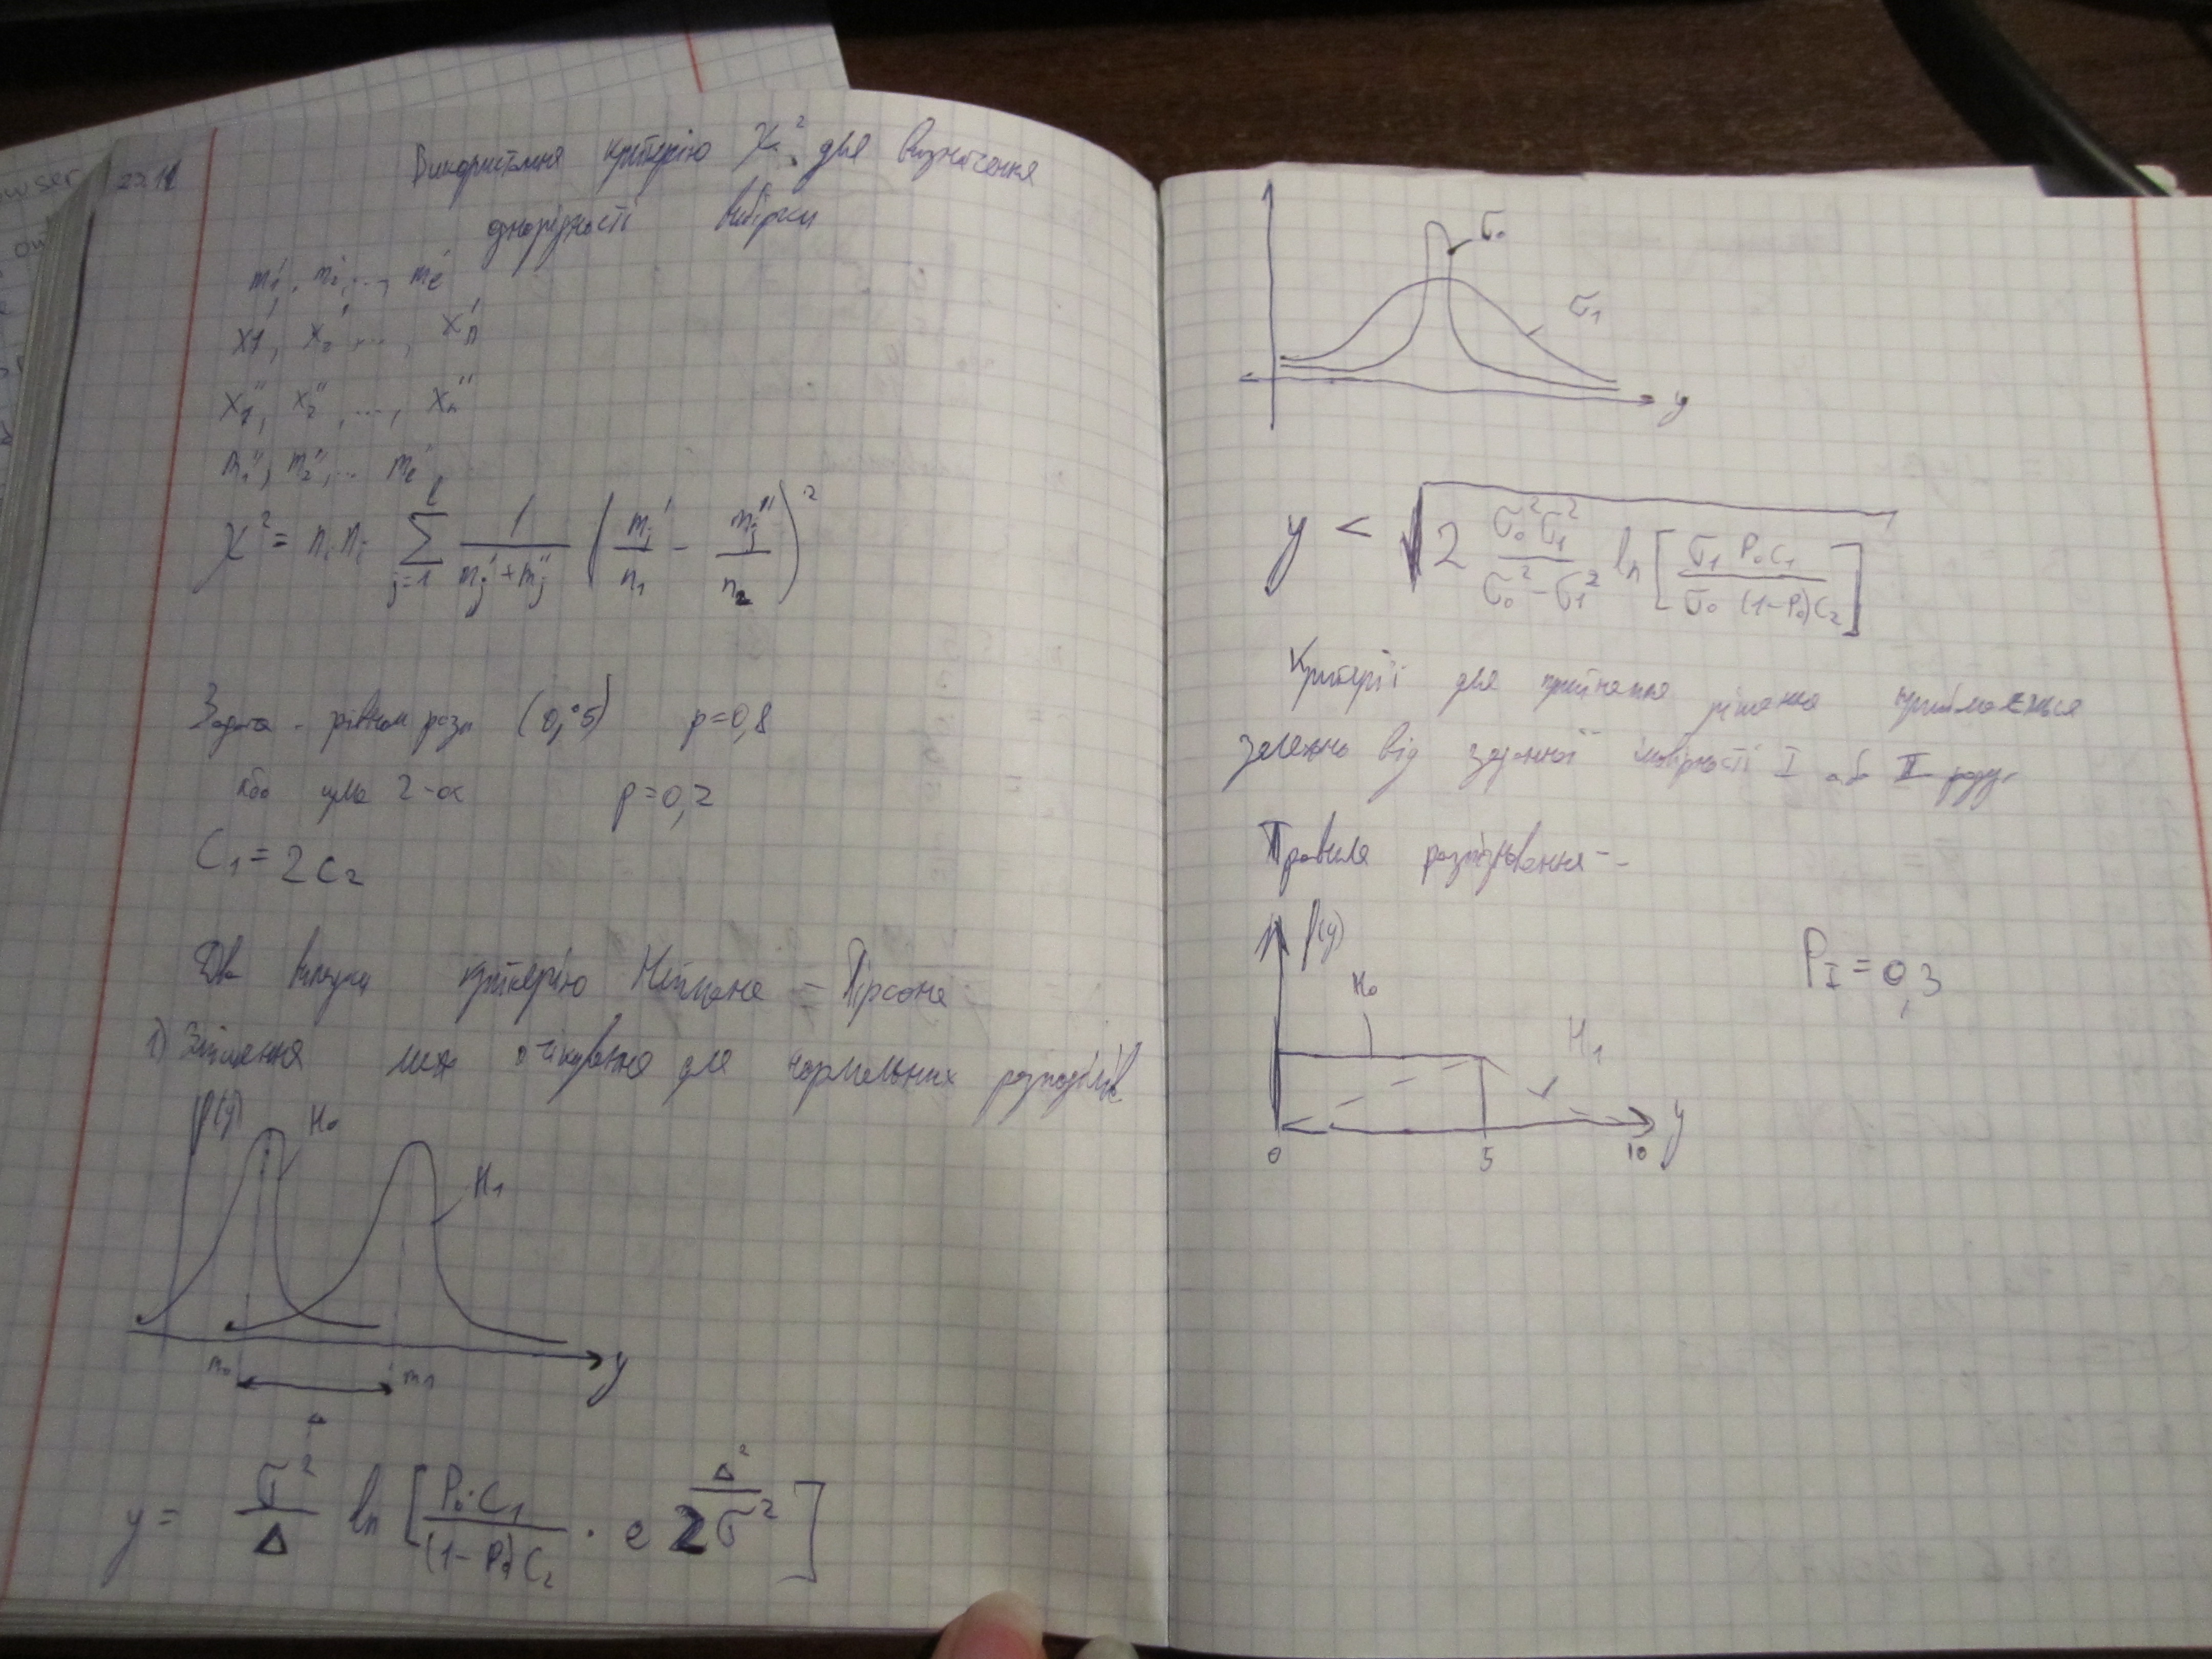 Використання критерію χ² для визначення
однорідності вибірки
m₁', m₂', ..., mₑ'
x₁', x₂', ..., xₙ'
x₁'', x₂'', ..., xₙ''
m₁'', m₂'', ... mₑ'
χ² = nᵢ nᵢ ∑_{j=1}^{l} 1/(mⱼ' + mⱼ'') (mⱼ'/n₁ - mⱼ''/n₂)²
Задача - рівном розп (0, 5) p=0,8
або сума 2-ох p=0,2
C₁ = 2C₂
Два випадки критерію Неймана - Пірсона
1) Зміщення мат очікування для нормальних розподілів
f(y) H₀ H₁
y
m₀ m₁
Δ
y = σ²/Δ ln [P₀·C₁/((1-P₀)C₂) · e^{Δ²/2σ²}]
σ₀
σ₁
y
y < √(2 σ₀²σ₁²/(σ₀²-σ₁²) ln [σ₁ P₀C₁/(σ₀ (1-P₀)C₂)])
Критерії для прийняття рішення приймається
залежно від заданної імовірності I або II роду.
Правила розпізнавання -
f(y) P_I = 0,3
H₀ H₁
0 5 10 y